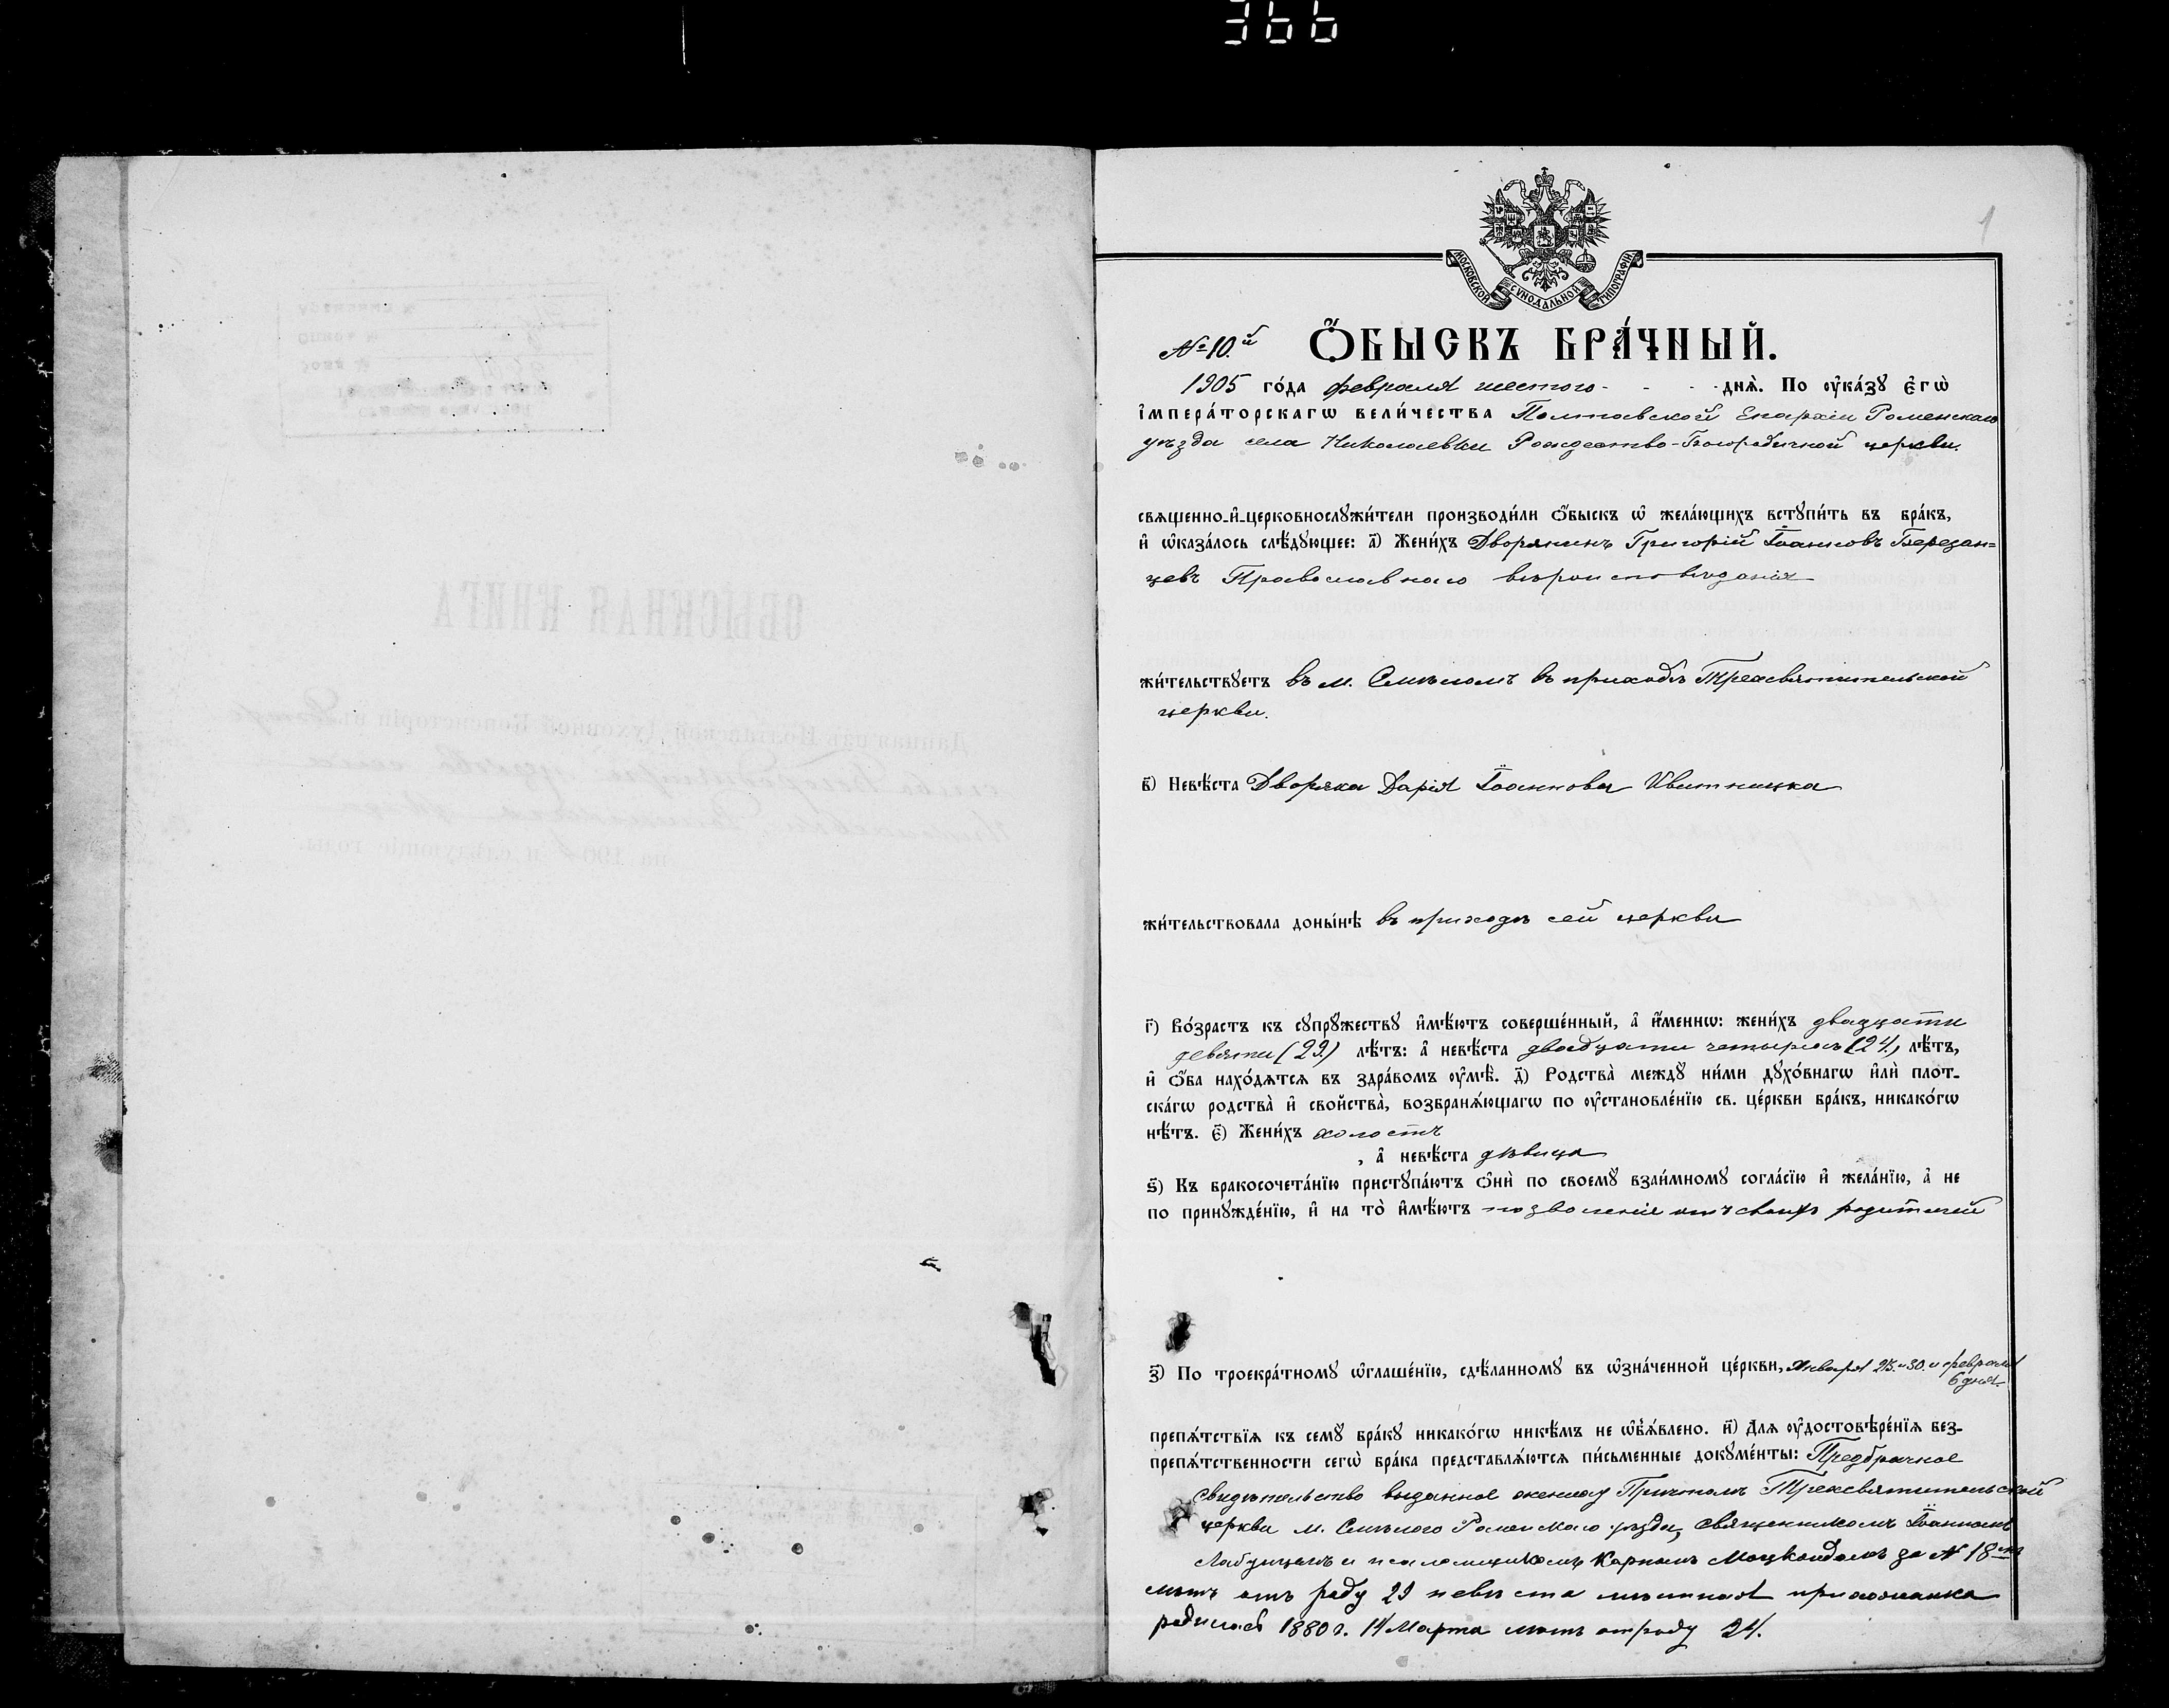 366
1
МОСКОВСКОЙ СѴНОДАЛЬНОЙ ТИПОГРАФІИ
№ 10.й ѺБЫСКЪ БРА́ЧНЫЙ.
1905 го́да февраля шестого дня̀. По ᲂу҆ка́зꙋ є҆гѡ̀
і҆мпера́торскагѡ вели́чества Полтавской Епархіи Роменскаго
уѣзда села Николаевки Рождество-Богородичной церкви.
свѧщенно-и҆-церковнослꙋжи́тели производи́ли ѻ҆́быскъ ѡ҆ жела́ющихъ встꙋпи́ть въ бра́къ,
и҆ ѡ҆каза́лось слѣ́дꙋющее: а҃) Жени́хъ Дворянинъ Григорій Іоанновъ Березан=
цевъ Православнаго вѣроисповѣданія
жи́тельствꙋетъ въ м. Смѣломъ въ приходѣ Трехсвятительской
церкви.
в҃) Невѣ́ста Дворяка Дарія Іоаннова Квитницка
жи́тельствовала доны́нѣ въ приходѣ сей церкви
г҃) Во́зрастъ къ сꙋпрꙋжествꙋ и҆мѣ́ютъ соверше́нный, а҆ и҆́меннѡ: жени́хъ двадцати
девяти (29.) лѣ́тъ: а҆ невѣ́ста двадцати четырехъ (24.) лѣ́тъ,
и҆ ѻ҆́ба нахо́дѧтсѧ въ здра́вомъ ᲂу҆мѣ̀. д҃) Родства̀ междꙋ ни́ми дꙋхо́внагѡ и҆лѝ пло́т-
ска́гѡ родства̀ и҆ свойства̀, возбранѧ́ющагѡ по ᲂу҆становле́нїю св. це́ркви бра́къ, никако́гѡ
нѣ́тъ. є҃) Жени́хъ холостъ
, а҆ невѣ́ста дѣвица
ѕ҃) Къ бракосочета́нїю пристꙋпа́ютъ ѻ҆нѝ по своемꙋ̀ взаи́мномꙋ согла́сїю и҆ жела́нїю, а҆ не
по принꙋжде́нїю, и҆ на то̀ и҆мѣ́ютъ позволеніе отъ своихъ родителей
з҃) По троекра́тномꙋ ѡ҆глаше́нїю, сдѣ́ланномꙋ въ ѡ҆зна́ченной це́ркви, Января 23. и 30. и февраля
6 дня.
препѧ́тствїѧ къ семꙋ̀ бра́кꙋ никако́гѡ никѣ́мъ не ѡ҆б̾ѧ́влено. и҃) Длѧ ᲂу҆достовѣре́нїѧ без-
препѧ́тственности сегѡ̀ бра́ка представлѧ́ются пи́сьменные докꙋме́нты: Предбрачное
свидѣтельство выданное жениху Причтомъ Трехсвятительской
церкви м. Смѣлого Роменскаго уѣзда, священникомъ Іоанномъ
и псаломщикомъ Карпомъ за № 18мъ
лѣтъ отъ роду 29 невѣста мѣстная прихожанка
родилась 1880 г. 14 Марта лѣтъ отроду 24.